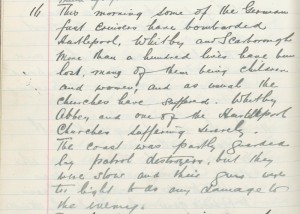 16 This morning some of the German
fast cruisers have bombarded
Hartlepool, Whitby and Scarborough
More than a hundred lives have been
lost, many of them being children
and women, and as usual the
Churches have suffered. Whitby
Abbey and one of the Hartlepool
Churches suffering severely.
The coast was partly guarded
by patrol destroyers, but they
were slow and their guns were
too light to do any damage to
the enemy.